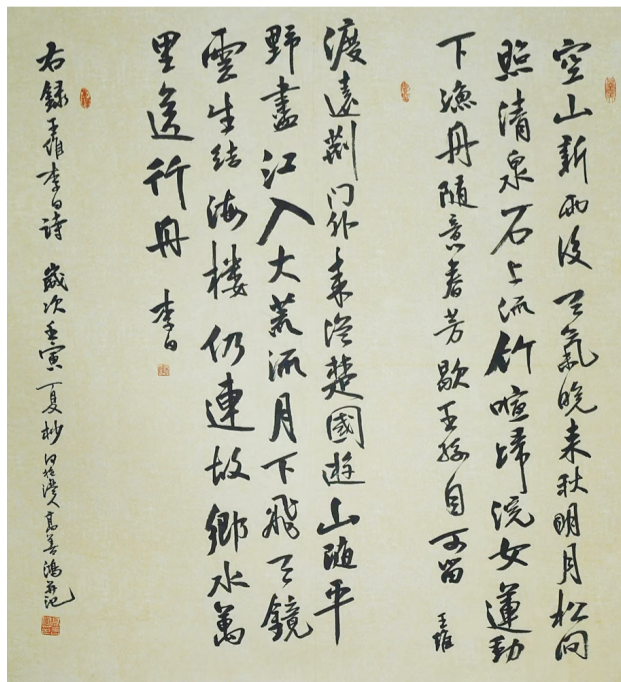 空山新雨後天氣晚来秋明月松间
照清泉石上流竹喧歸浣女蓮動
下漁舟随意春芳歇王孫自可留 王维
渡遠荆门外来從楚國遊山随平
野盡江入大荒流月下飛天鏡
雲生结海楼仍連故鄉水萬
里送行舟 李白
右録王维李白詩 歲次壬寅夏杪 人高善鴻并记